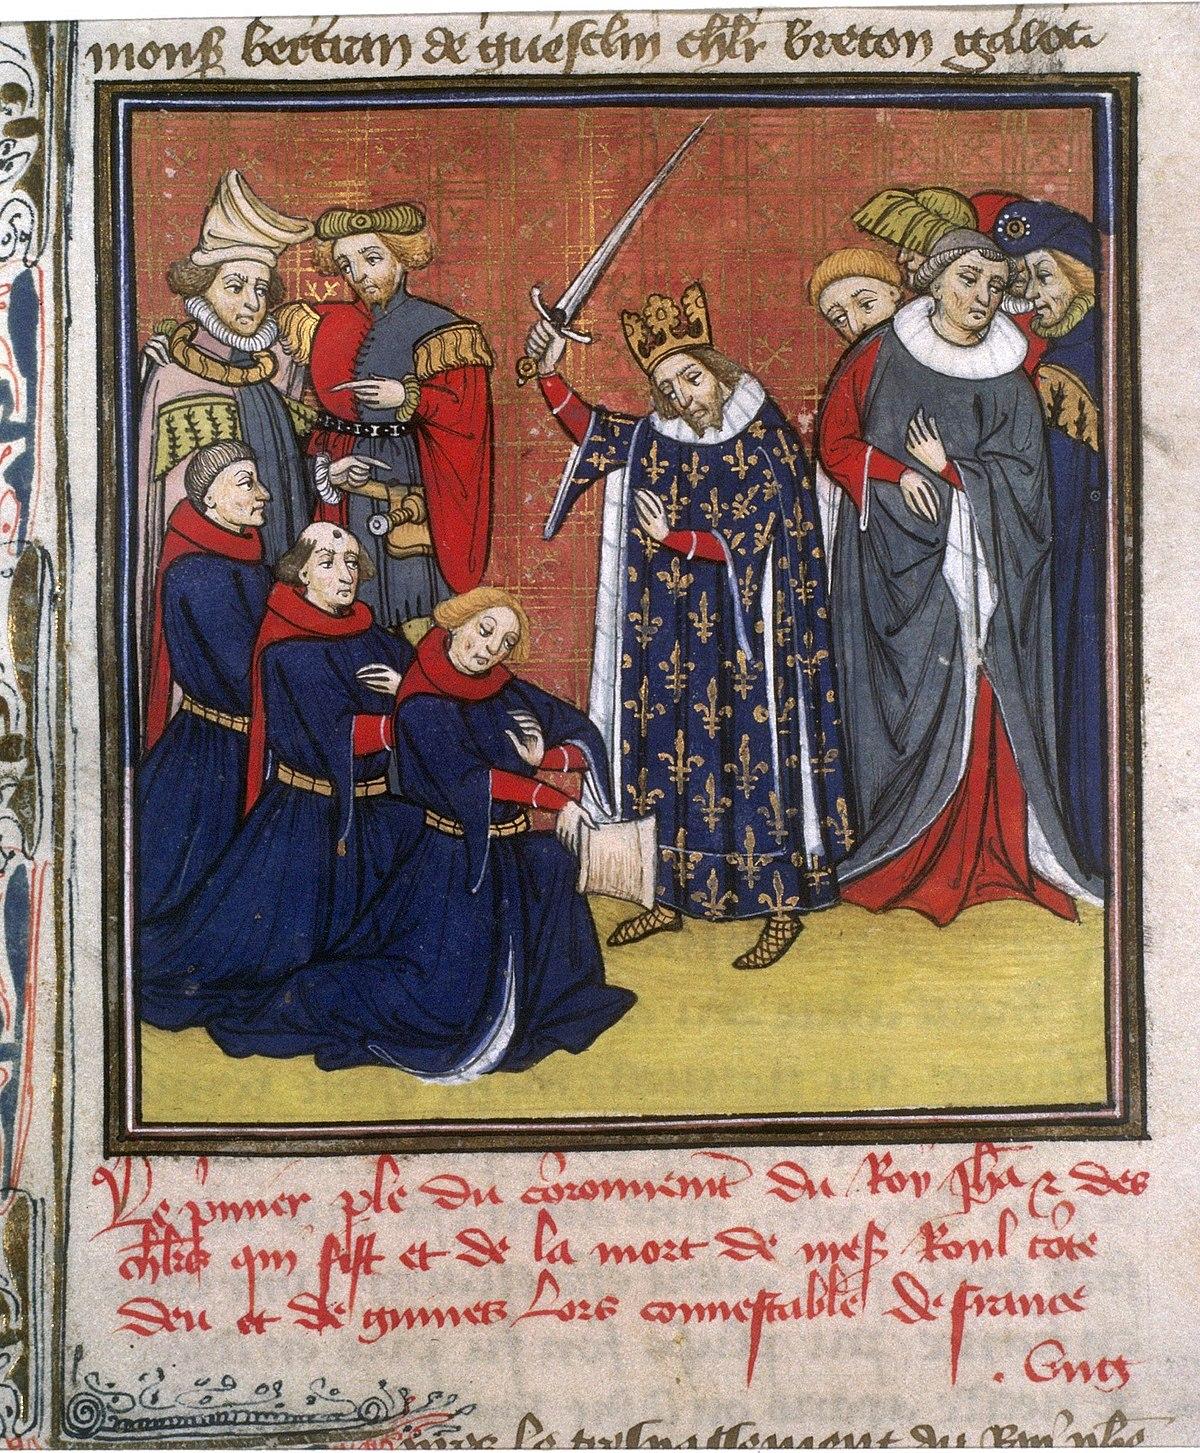 monsr bertran de guesclin chlr breton
Le pmier ple du coronnemt du Roy Jha et des
chlrs qui fist et de la mort de messr Roul cote
deu et de guines Lors connestable de france
le trespassement du Roy phe